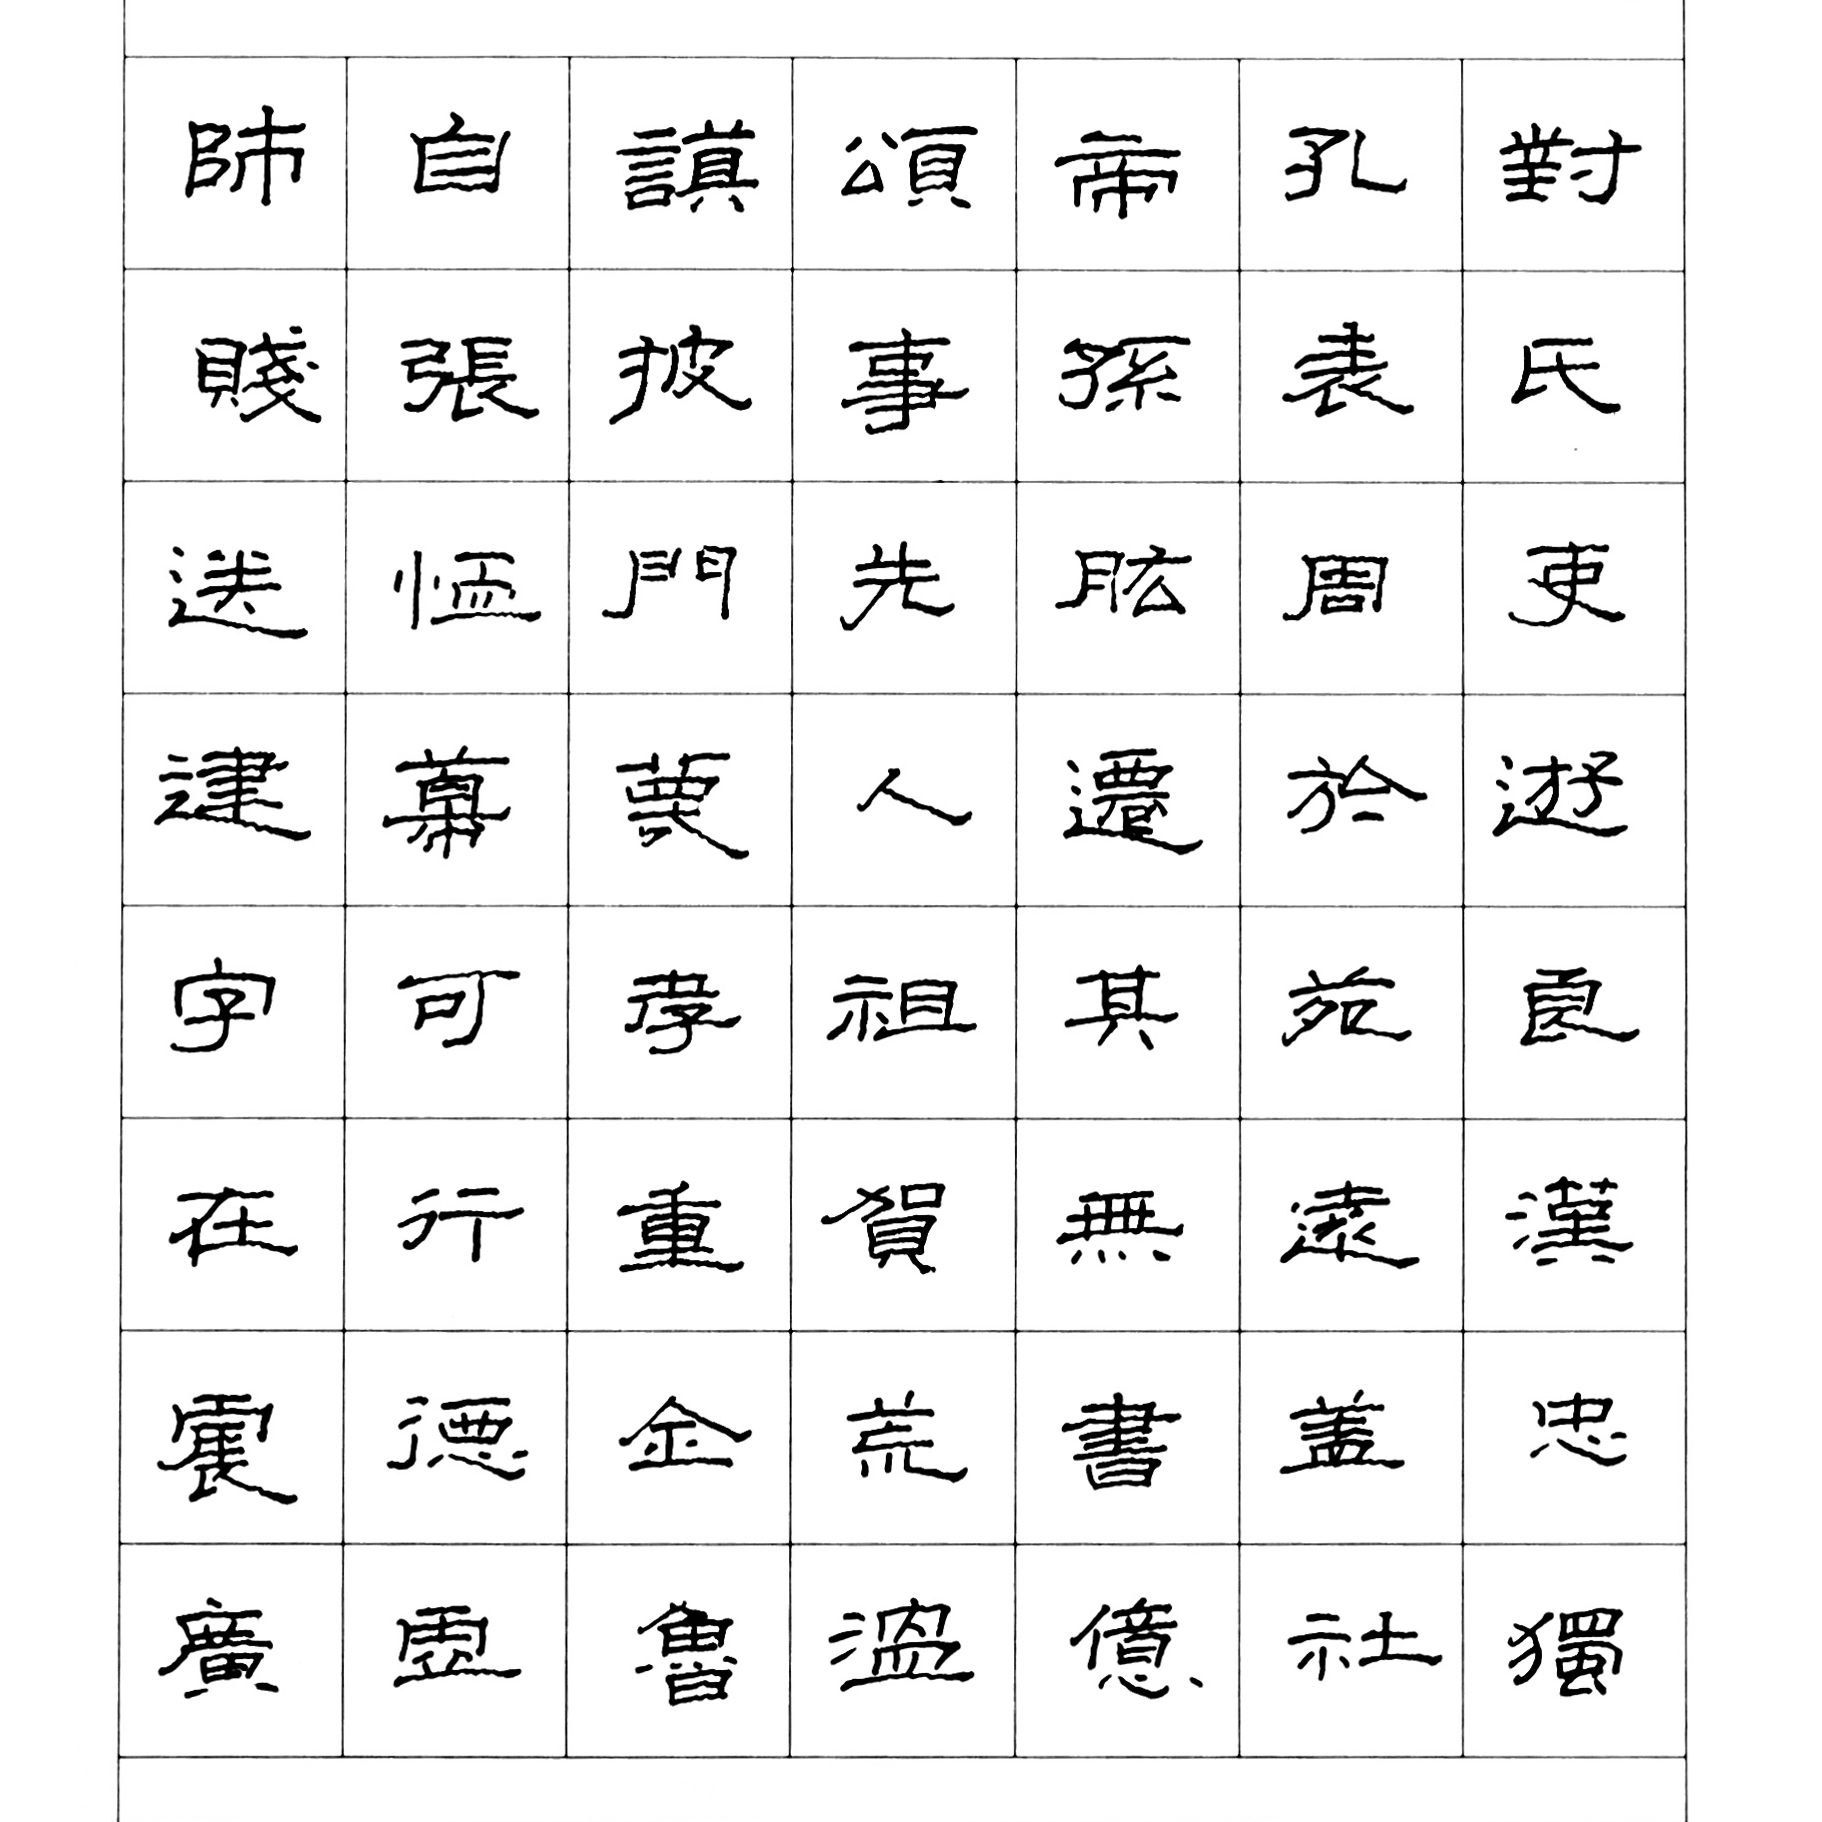 對氏吏遊良漢忠獨
孔表周於苑遠盖社
帝孫肱遷其無書億
頌事先人祖賀荒溫
謨披門孝重金魯
自張恤幕可行德虛
師賤送建字在震廣